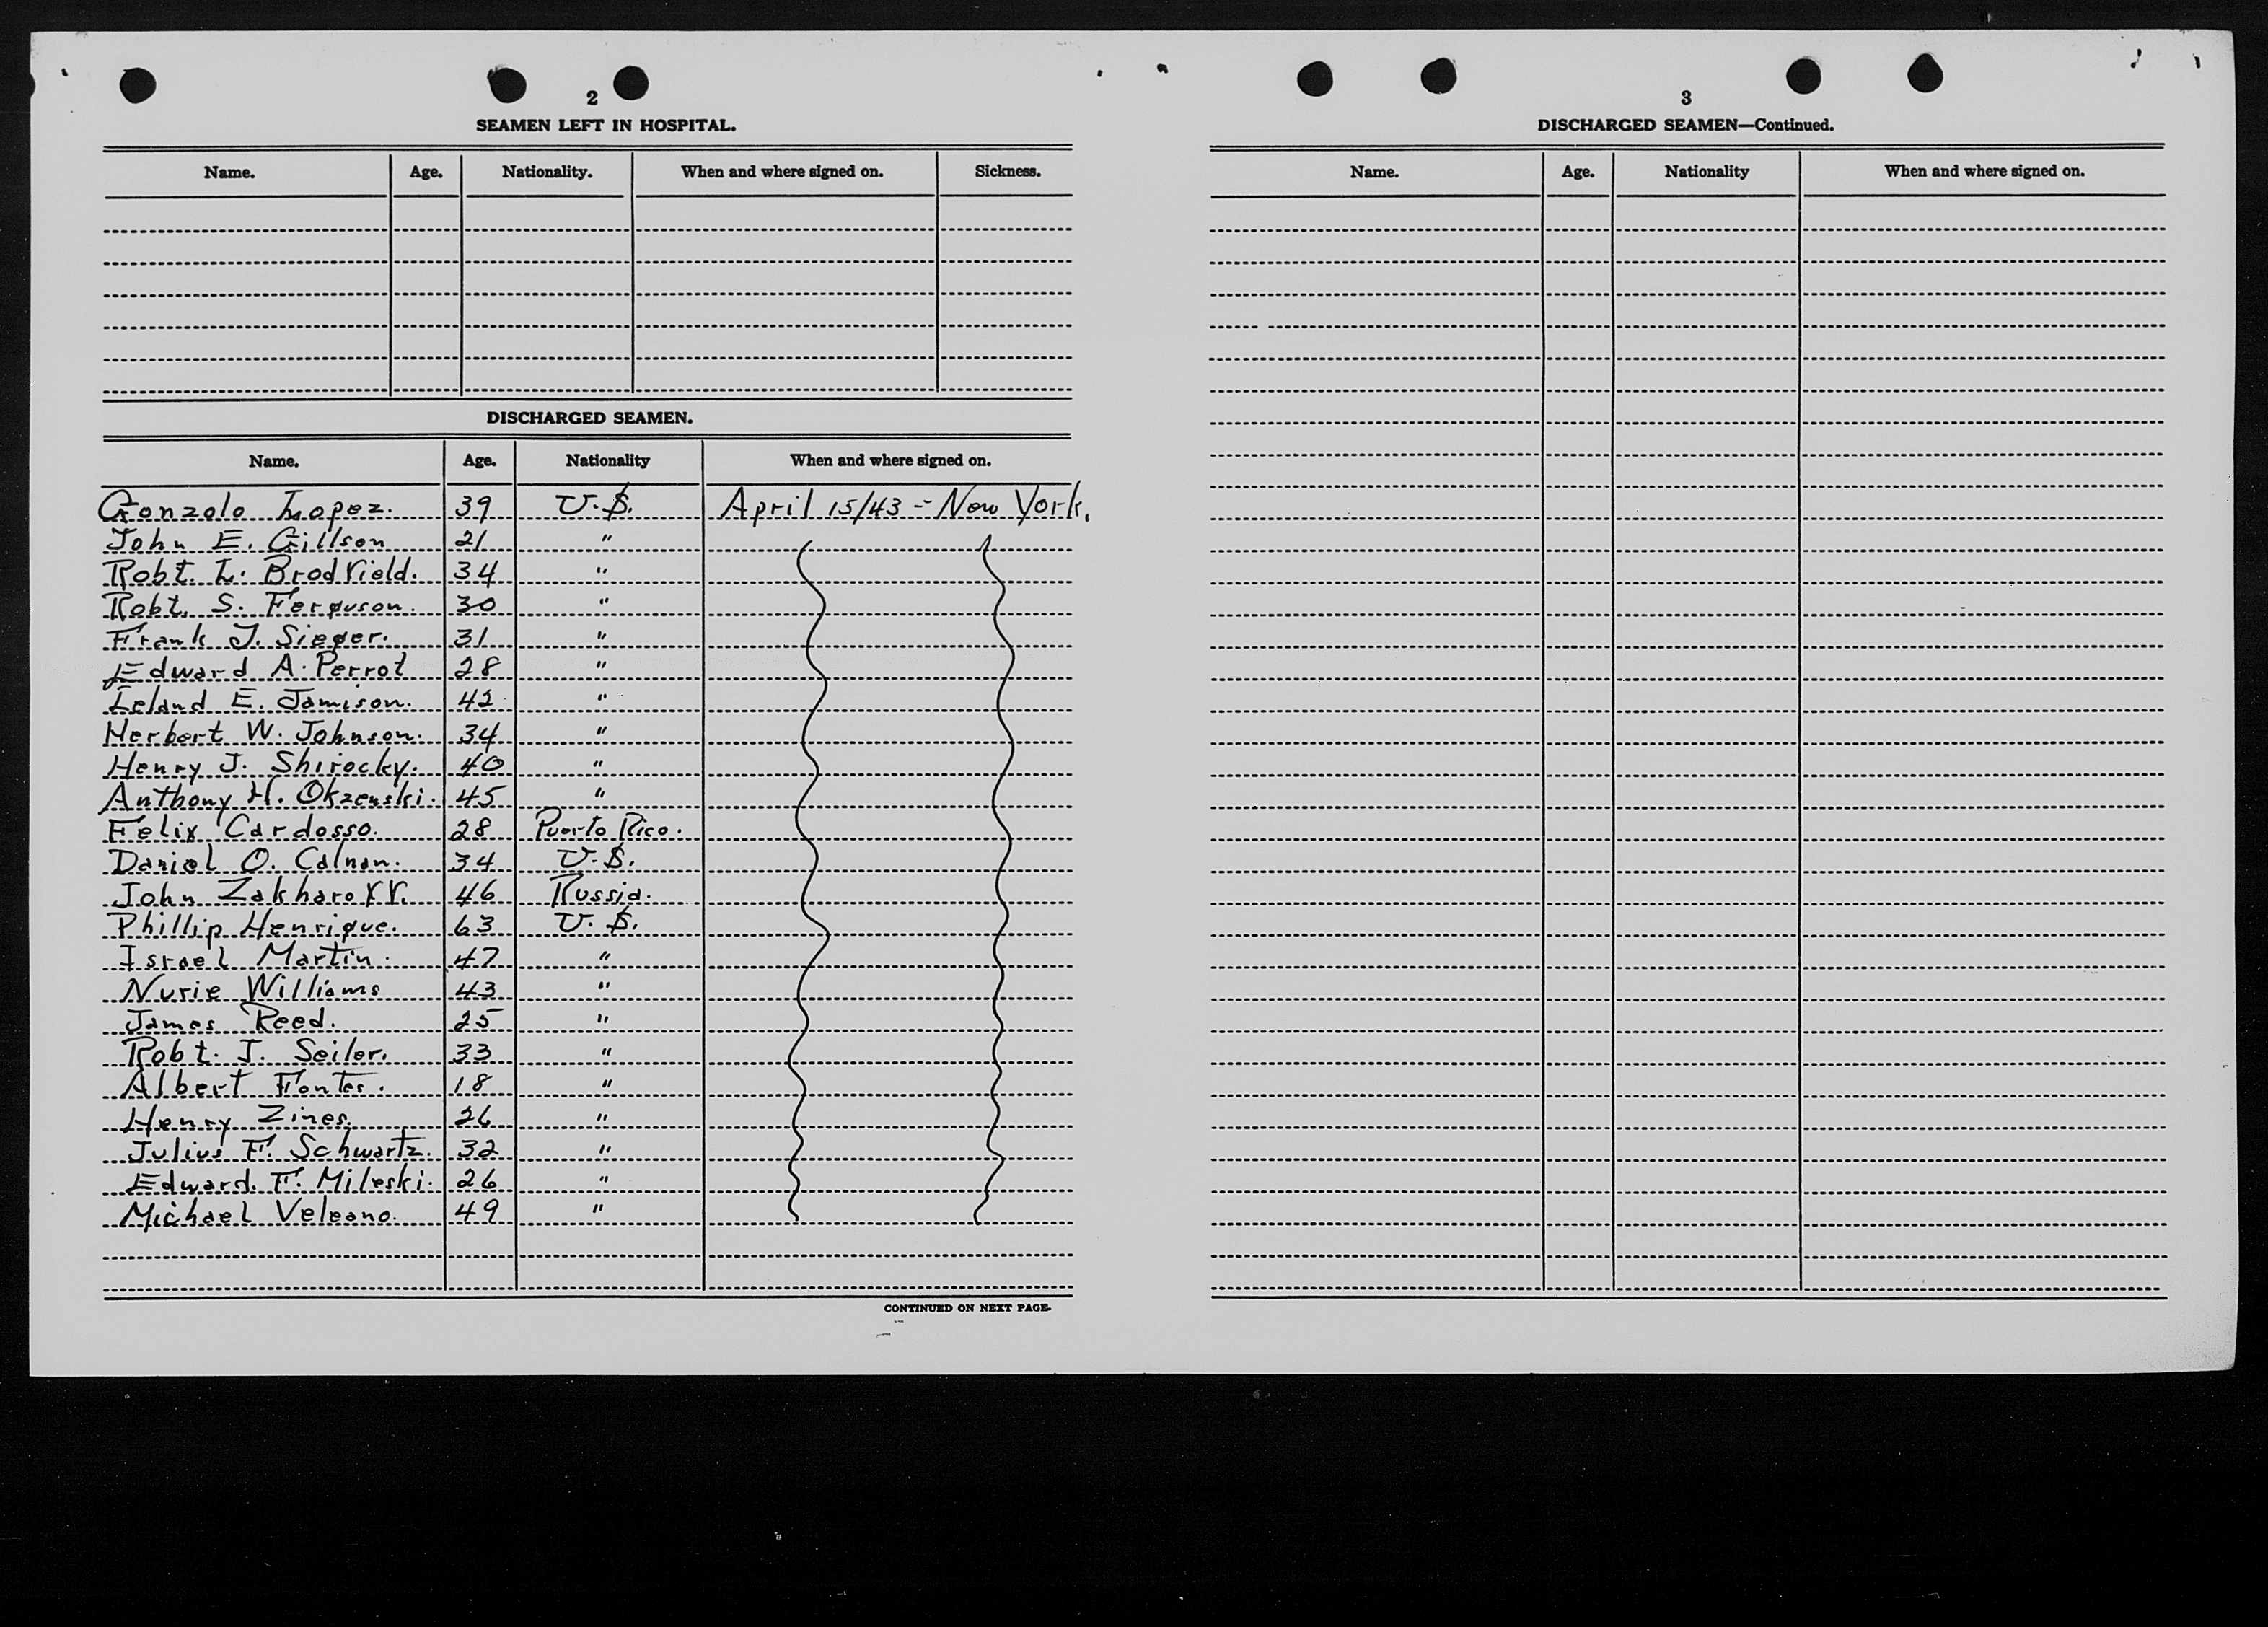 2
SEAMEN LEFT IN HOSPITAL.
Name. Age. Nationality. When and where signed on. Sickness.
DISCHARGED SEAMEN.
Name. Age. Nationality When and where signed on.
Gonzalo Lopez. 39 U.S. April 15/43 - New York.
John E. Gillson 21 "
Robt. L. Brodfield. 34 "
Robt. S. Ferguson. 30 "
Frank J. Sieger. 31 "
Edward A. Perrot 28 "
Leland E. Jamison. 42 "
Herbert W. Johnson. 34 "
Henry J. Shirocky. 40 "
Anthony H. Okzenski. 45 "
Felix Cardosso. 28 Puerto Rico.
Daniel O. Calnan. 34 U.S.
John Zakharoff. 46 Russia.
Phillip Henrique. 63 U.S.
Israel Martin. 47 "
Nurie Williams 43 "
James Reed. 25 "
Robt. J. Seiler. 33 "
Albert Fontes. 18 "
Henry Zines. 26 "
Julius F. Schwartz. 32 "
Edward. F. Mileski. 26 "
Michael Veleano. 49 "
CONTINUED ON NEXT PAGE.
3
DISCHARGED SEAMEN—Continued.
Name. Age. Nationality When and where signed on.